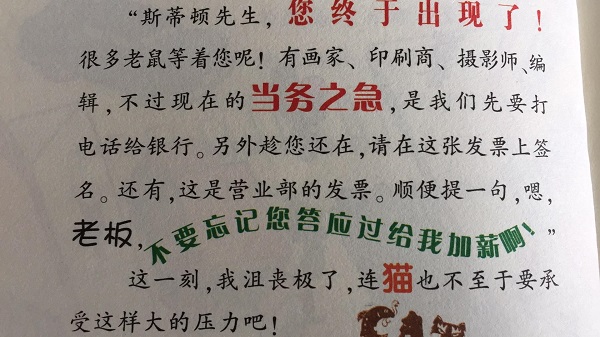 “斯蒂顿先生，您终于出现了！
很多老鼠等着您呢！有画家、印刷商、摄影师、编
辑，不过现在的当务之急，是我们先要打
电话给银行。另外趁您还在，请在这张发票上签
名。还有，这是营业部的发票。顺便提一句，嗯，
老板，不要忘记您答应过给我加薪啊！”
这一刻，我沮丧极了，连猫也不至于要承
受这样大的压力吧！